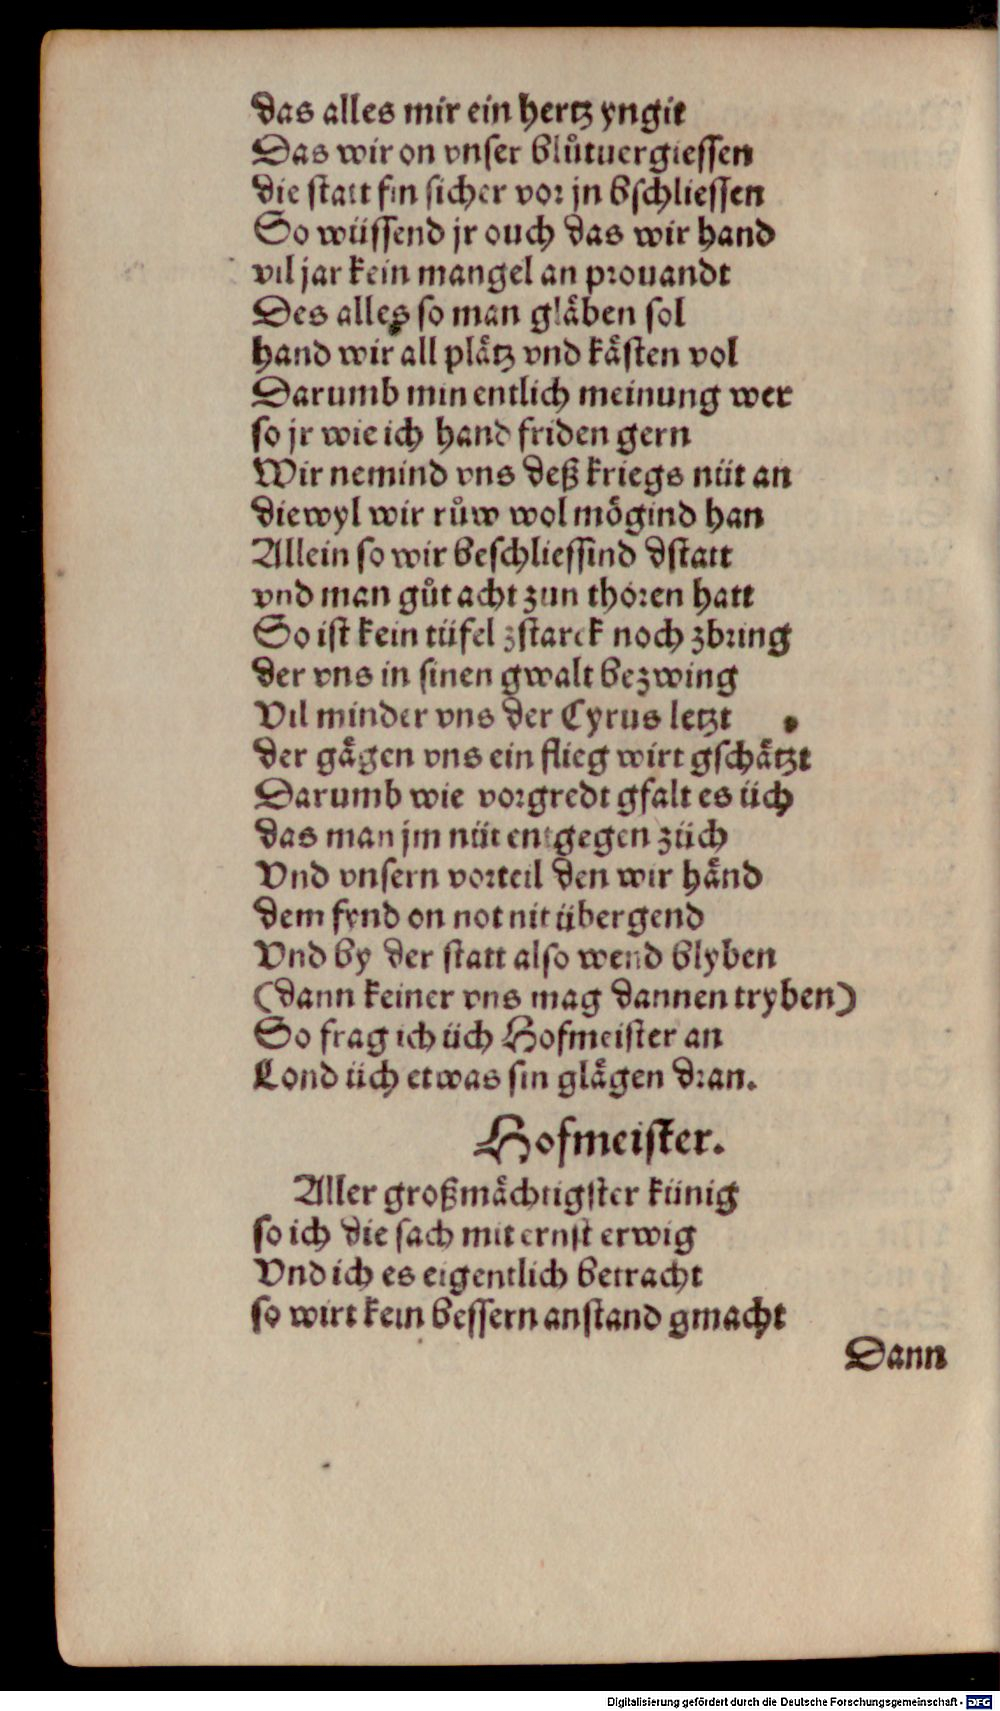 das alles mir ein hertz yngit
Das wir on vnser blůtuergiessen
die statt fin sicher vor jn bschliessen
So wüssend jr ouch das wir hand
vil jar kein mangel an prouandt
Des alles so man gläben sol
hand wir all plätz vnd kästen vol
Darumb min entlich meinung wer
so jr wie ich hand friden gern
Wir nemind vns deß kriegs nüt an
diewyl wir růw wol mögind han
Allein so wir beschliessind dstatt
vnd man gůt acht zun thoren hatt
So ist kein tüfel zstarck noch zbring
der vns in sinen gwalt bezwing
Vil minder vns der Cyrus letzt
der gägen vns ein flieg wirt gschätzt
Darumb wie vorgredt gfalt es üch
das man jm nüt entgegen züch
Vnd vnsern vorteil den wir händ
dem fynd on not nit übergend
Vnd by der statt also wend blyben
(dann keiner vns mag dannen tryben)
So frag ich üch Hofmeister an
Lond üch etwas sin glägen dran.
Hofmeister.
Aller großmächtigster künig
so ich die sach mit ernst erwig
Vnd ich es eigentlich betracht
so wirt kein bessern anstand gmacht
Dann
Digitalisierung gefördert durch die Deutsche Forschungsgemeinschaft - DFG